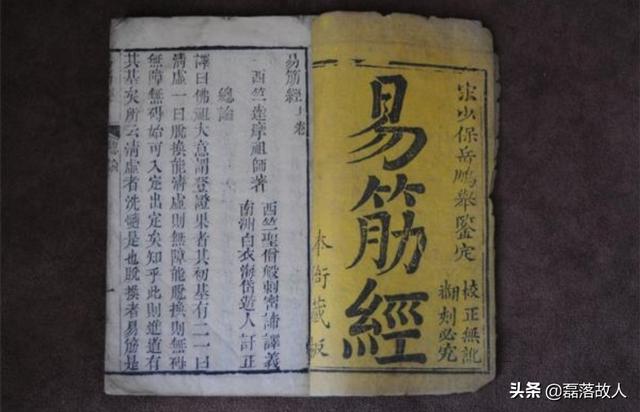 宋少保岳鵬舉鑒定
校正無訛
翻刻必究
易筋經
本衙藏板
易筋經上卷
西竺達摩祖師著
西竺聖僧般剌密諦譯義
南洲白衣海岱遊人訂正
總論
譯曰佛祖大意謂登證果者其初基有二一曰
清虛一曰脫換能清虛則無障能脫換則無碍
無障無碍始可入定出定矣知乎此則進道有
其基矣所云清虛者洗髓是也脫換者易筋是
頭条 @磊落故人